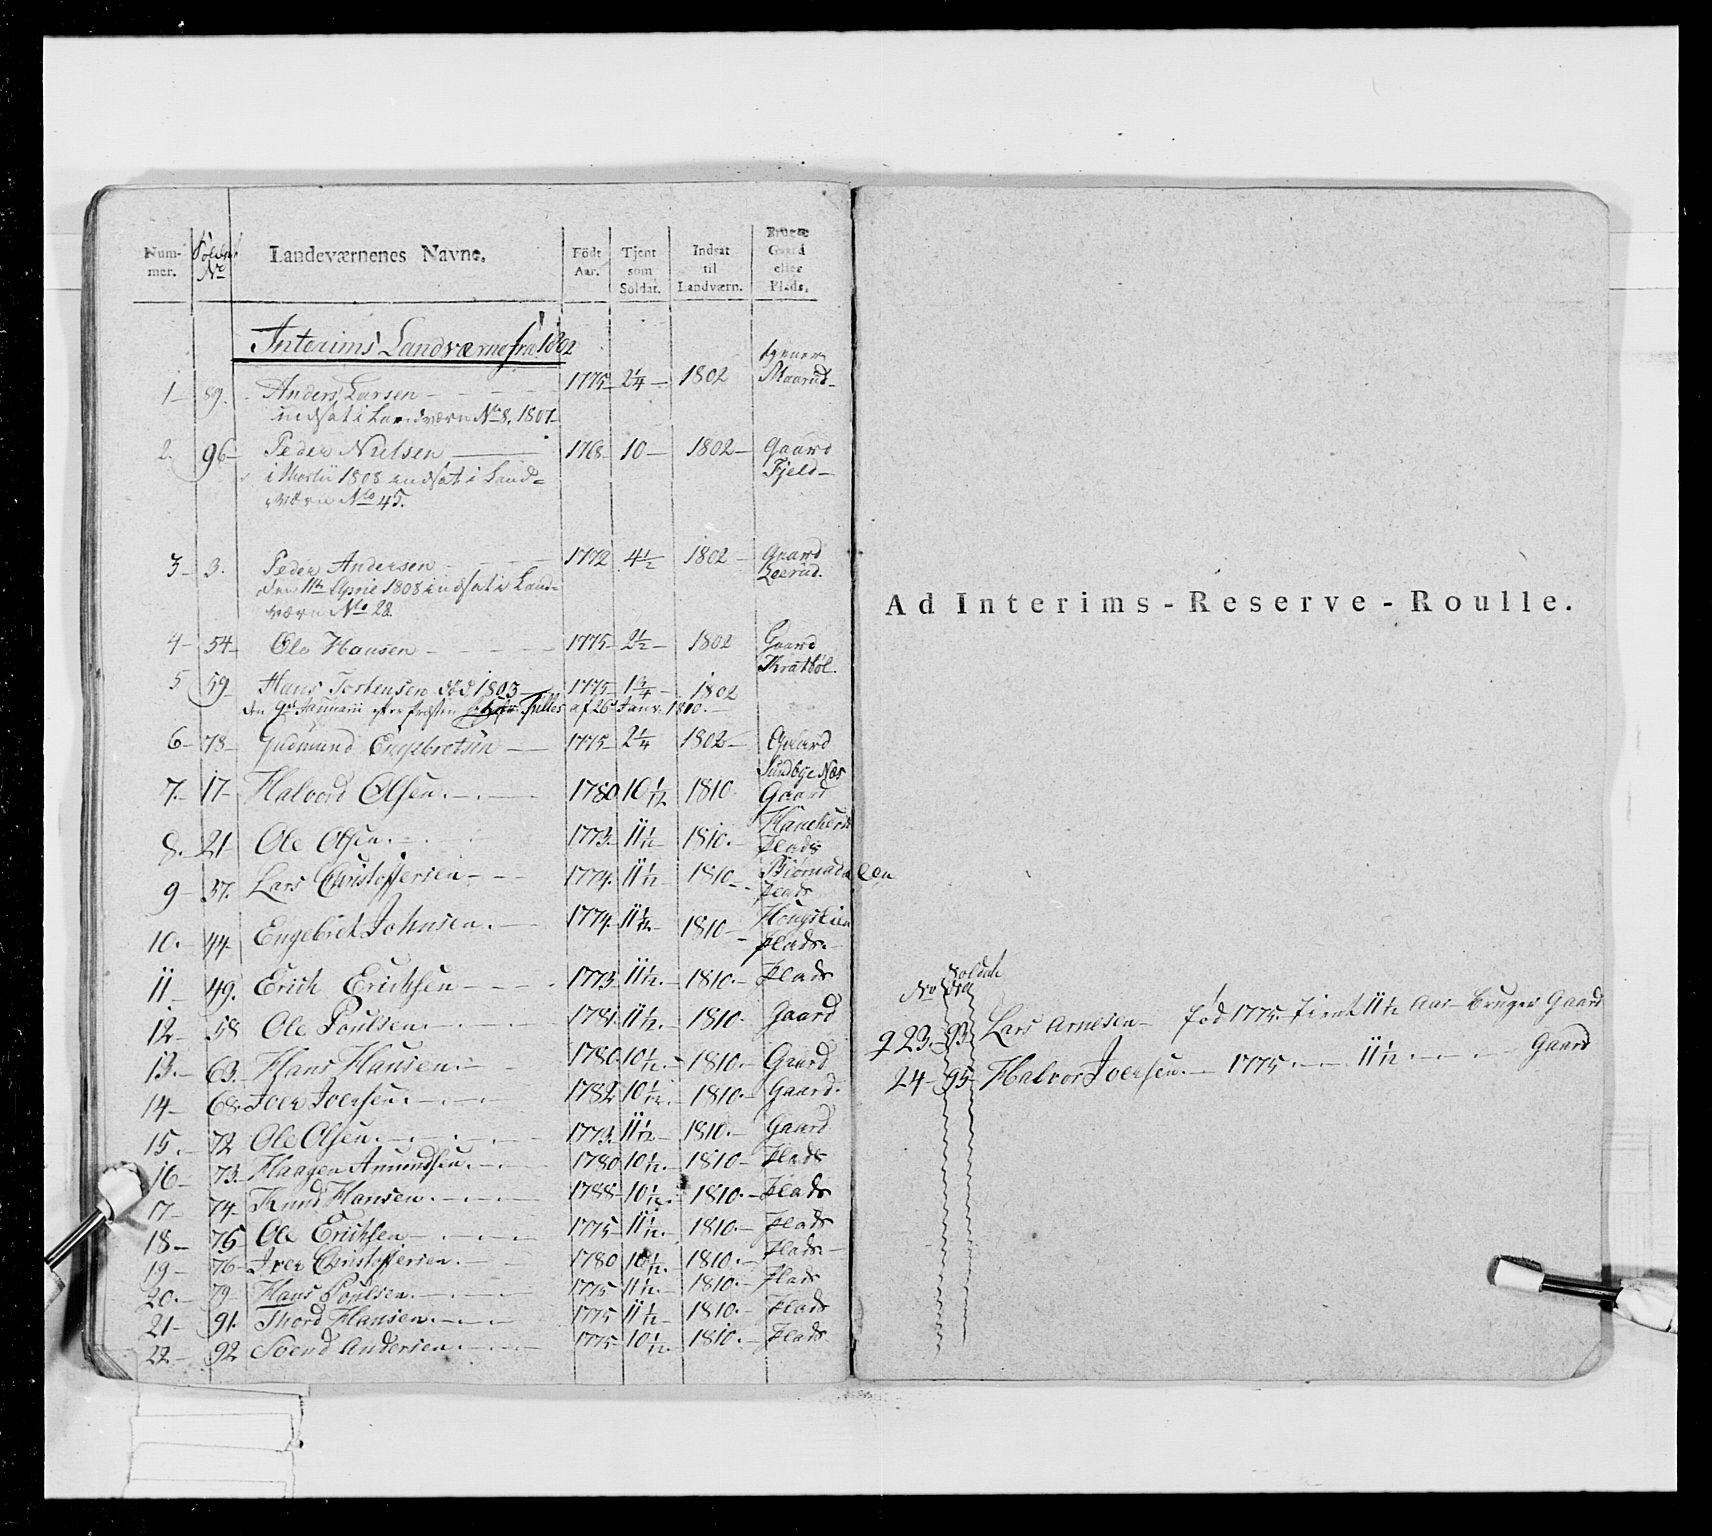 Num-mer. Soldat No Landeværnenes Navne. Født Aar. Tjent som Soldat. Indsat til Landværn. Bruger Gaard eller Plads.
Interims Landværne fra 1802
1 89. Anders Larsen 1775 2¼ 1802 Maarud
indsat i Landværn No 8, 1807
2. 96 Peder Nielsen 1768 10 1802 Gaard Fjeld
i Martii 1808 indsat i Land-
værn No 45.
3 3. Peder Andersen 1772 4½ 1802 Gaard
den 11te April 1808 indsat i Land-
værn No 28.
4 54 Ole Hansen 1775 2½ 1802 Gaard Kratbøl.
5 59 Hans Torstensen død 1803 1775 1¾ 1802
den 9de Januarii efter Præsten af 26 Janv. 1810.
6 78 Gudmund Engebretsen 1775 2¼ 1802 Gaard Sundbye Næs
7. 17 Halvord Olsen. 1780 10 1/12 1810 Gaard
8. 21 Ole Olsen. 1773 11 1/2 1810. Plads
9 37. Lars Christoffersen 1774. 11 1/2 1810 Plads
10. 44 Engebret Johnsen. 1774. 11 1/2 1810 Plads.
11 49. Erich Erichsen 1773 11 1/2. 1810. Plads
12 58 Ole Poulsen. 1781 11 1/2. 1810. Gaard
13. 63. Hans Hansen. 1780 10 1/2. 1810. Gaard
14 68. Iver Iversen. 1782 10 1/12. 1810. Gaard.
15. 72 Ole Olsen. 1773. 11 1/2 1810. Gaard
16 73. Haagen Amundsen. 1780 10 1/2. 1810 Plads
17 74. Knud Hansen. 1788 10 1/12. 1810. Plads
18 75 Ole Erichsen 1775 11 1/2. 1810. Plads
19 76 Iver Christoffersen. 1780 10 1/12. 1810. Plads.
20. 79 Hans Poulsen. 1775 11 1/2. 1810. Plads
21 91. Thord Hansen. 1775 11 1/2 1810. Plads
22 92 Svend Andersen. 1775 10 1/12. 1810. Plads
Ad Interims-Reserve-Roulle.
No Soldat No
23. 93 Lars Arnesen fød 1775. tient 11 1/2 Aar bruger Gaard
24 95 Halvor Iversen. 1775. 11 1/2. Gaard